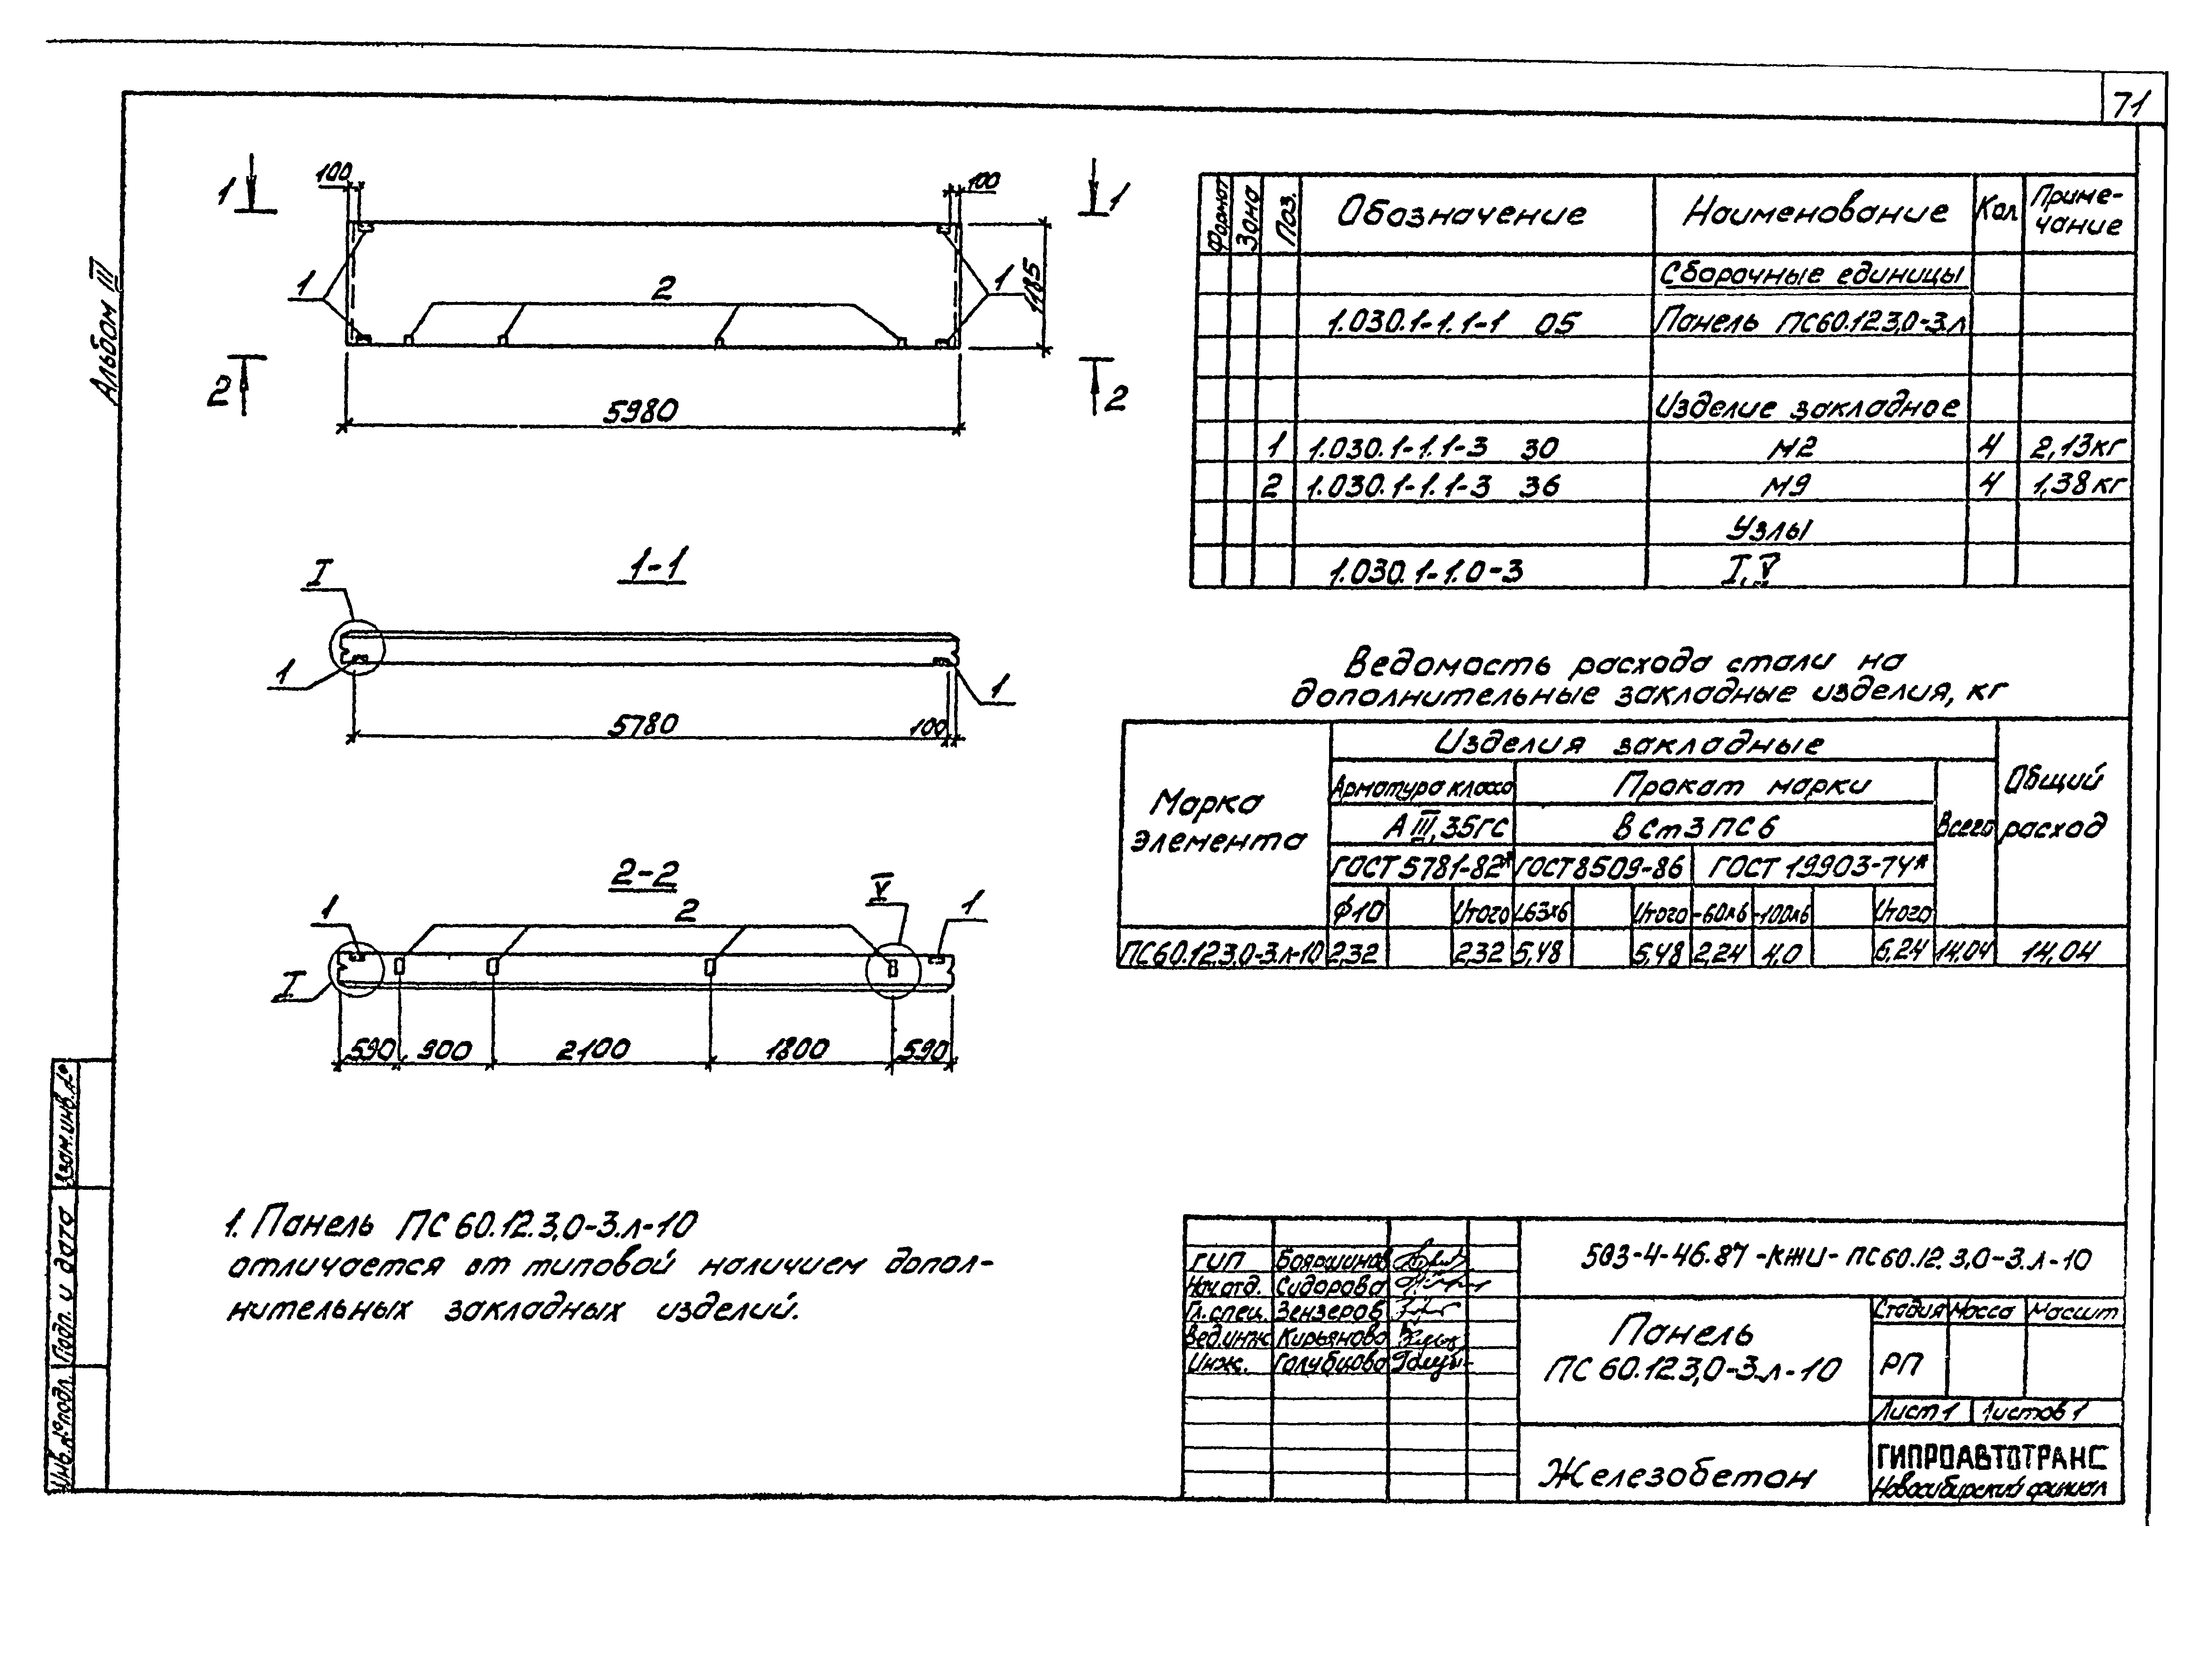 71
Альбом III
1
100
100
1
1
2
1
1185
2
5980
2
1-1
I
1
1
5780
100
2-2
1
2
V
1
I
590 900 2100 1800 590
1. Панель ПС 60.12.3,0-3.л-10
отличается от типовой наличием допол-
нительных закладных изделий.
Формат Зона Поз. Обозначение Наименование Кол Приме-
чание
Сборочные единицы
1.030.1-1.1-1 05 Панель ПС60.12.3,0-3.л
Изделие закладное
1 1.030.1-1.1-3 30 М2 4 2,13кг
2 1.030.1-1.1-3 36 М9 4 1,38кг
Узлы
1.030.1-1.0-3 I, V
Ведомость расхода стали на
дополнительные закладные изделия, кг
Марка
элемента
Изделия закладные
Арматура класса Прокат марки
Общий
расход
А III, 35ГС ВСт3ПС6 Всего
ГОСТ 5781-82* ГОСТ 8509-86 ГОСТ 19903-74*
ϕ10 Итого L63х6 Итого -60х6 -100х6 Итого
ПС60.12.3,0-3.л-10 2,32 2,32 5,48 5,48 2,24 4,0 6,24 14,04 14,04
503-4-46.87-КЖИ-ПС60.12.3,0-3.л-10
ГИП Бояршинов
Нач.отд. Сидорова
Гл.спец. Зензеров
Вед.инж Кирьянова
Инж. Голубцова
Панель
ПС 60.12.3,0-3.л-10
Стадия Масса Масшт
РП
Лист 1 Листов 1
Железобетон
ГИПРОАВТОТРАНС
Новосибирский филиал
Взам.инв.№
Подп. и дата
Инв.№ подл.